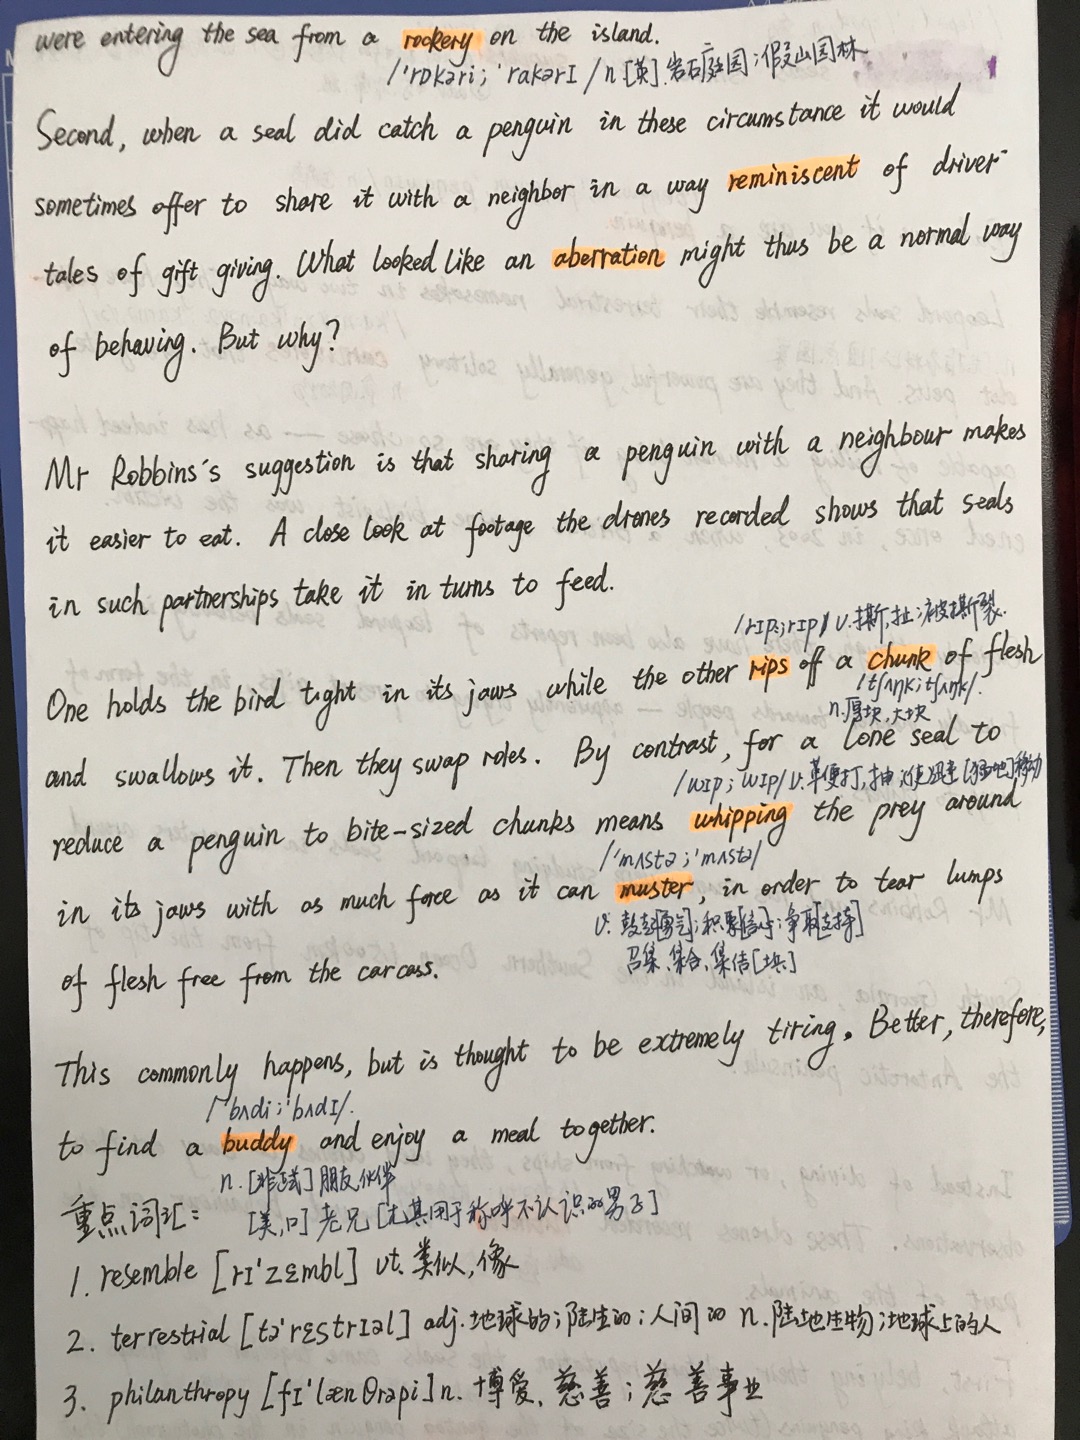 were entering the sea from a rockery on the island.
/'rɒkəri; 'rakərI / n.[英] 岩石庭园;假山园林
Second, when a seal did catch a penguin in these circumstance it would
sometimes offer to share it with a neighbor in a way reminiscent of driver-
tales of gift giving. What looked like an aberration might thus be a normal way
of behaving. But why?
Mr Robbins's suggestion is that sharing a penguin with a neighbour makes
it easier to eat. A close look at footage the drones recorded shows that seals
in such partnerships take it in turns to feed.
/rIp;rIp/ v.撕,扯;被撕裂.
One holds the bird tight in its jaws while the other rips off a chunk of flesh
/tʃʌŋk;tʃʌŋk/.
n.厚块,大块
and swallows it. Then they swap roles. By contrast, for a lone seal to
/wIp; wIp/ v.革便打,抽;使迅速[猛地]移动
reduce a penguin to bite-sized chunks means whipping the prey around
/'mʌstə;'mʌstə/
in its jaws with as much force as it can muster, in order to tear lumps
v. 鼓起[勇气];积聚;争取[支持]
召集、集合、集结[士兵]
of flesh free from the carcass.
This commonly happens, but is thought to be extremely tiring. Better, therefore,
/'bʌdi;'bʌdI/.
to find a buddy and enjoy a meal together.
n. [非正式] 朋友伙伴
重点词汇: [美,口] 老兄[尤其用于称呼不认识的男子]
1. resemble [rI'zɛmbl] vt. 类似,像
2. terrestrial [tə'rɛstrIəl] adj.地球的;陆生的;人间的 n.陆地生物;地球上的人
3. philanthropy [fI'lænθrəpi] n. 博爱、慈善;慈善事业